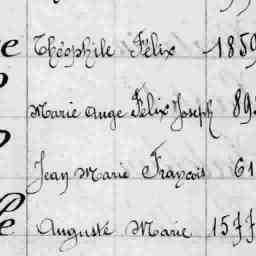 Théophile Félix 1859
Marie Ange Félix Joseph 89
Jean Marie François 61
Auguste Marie 1577